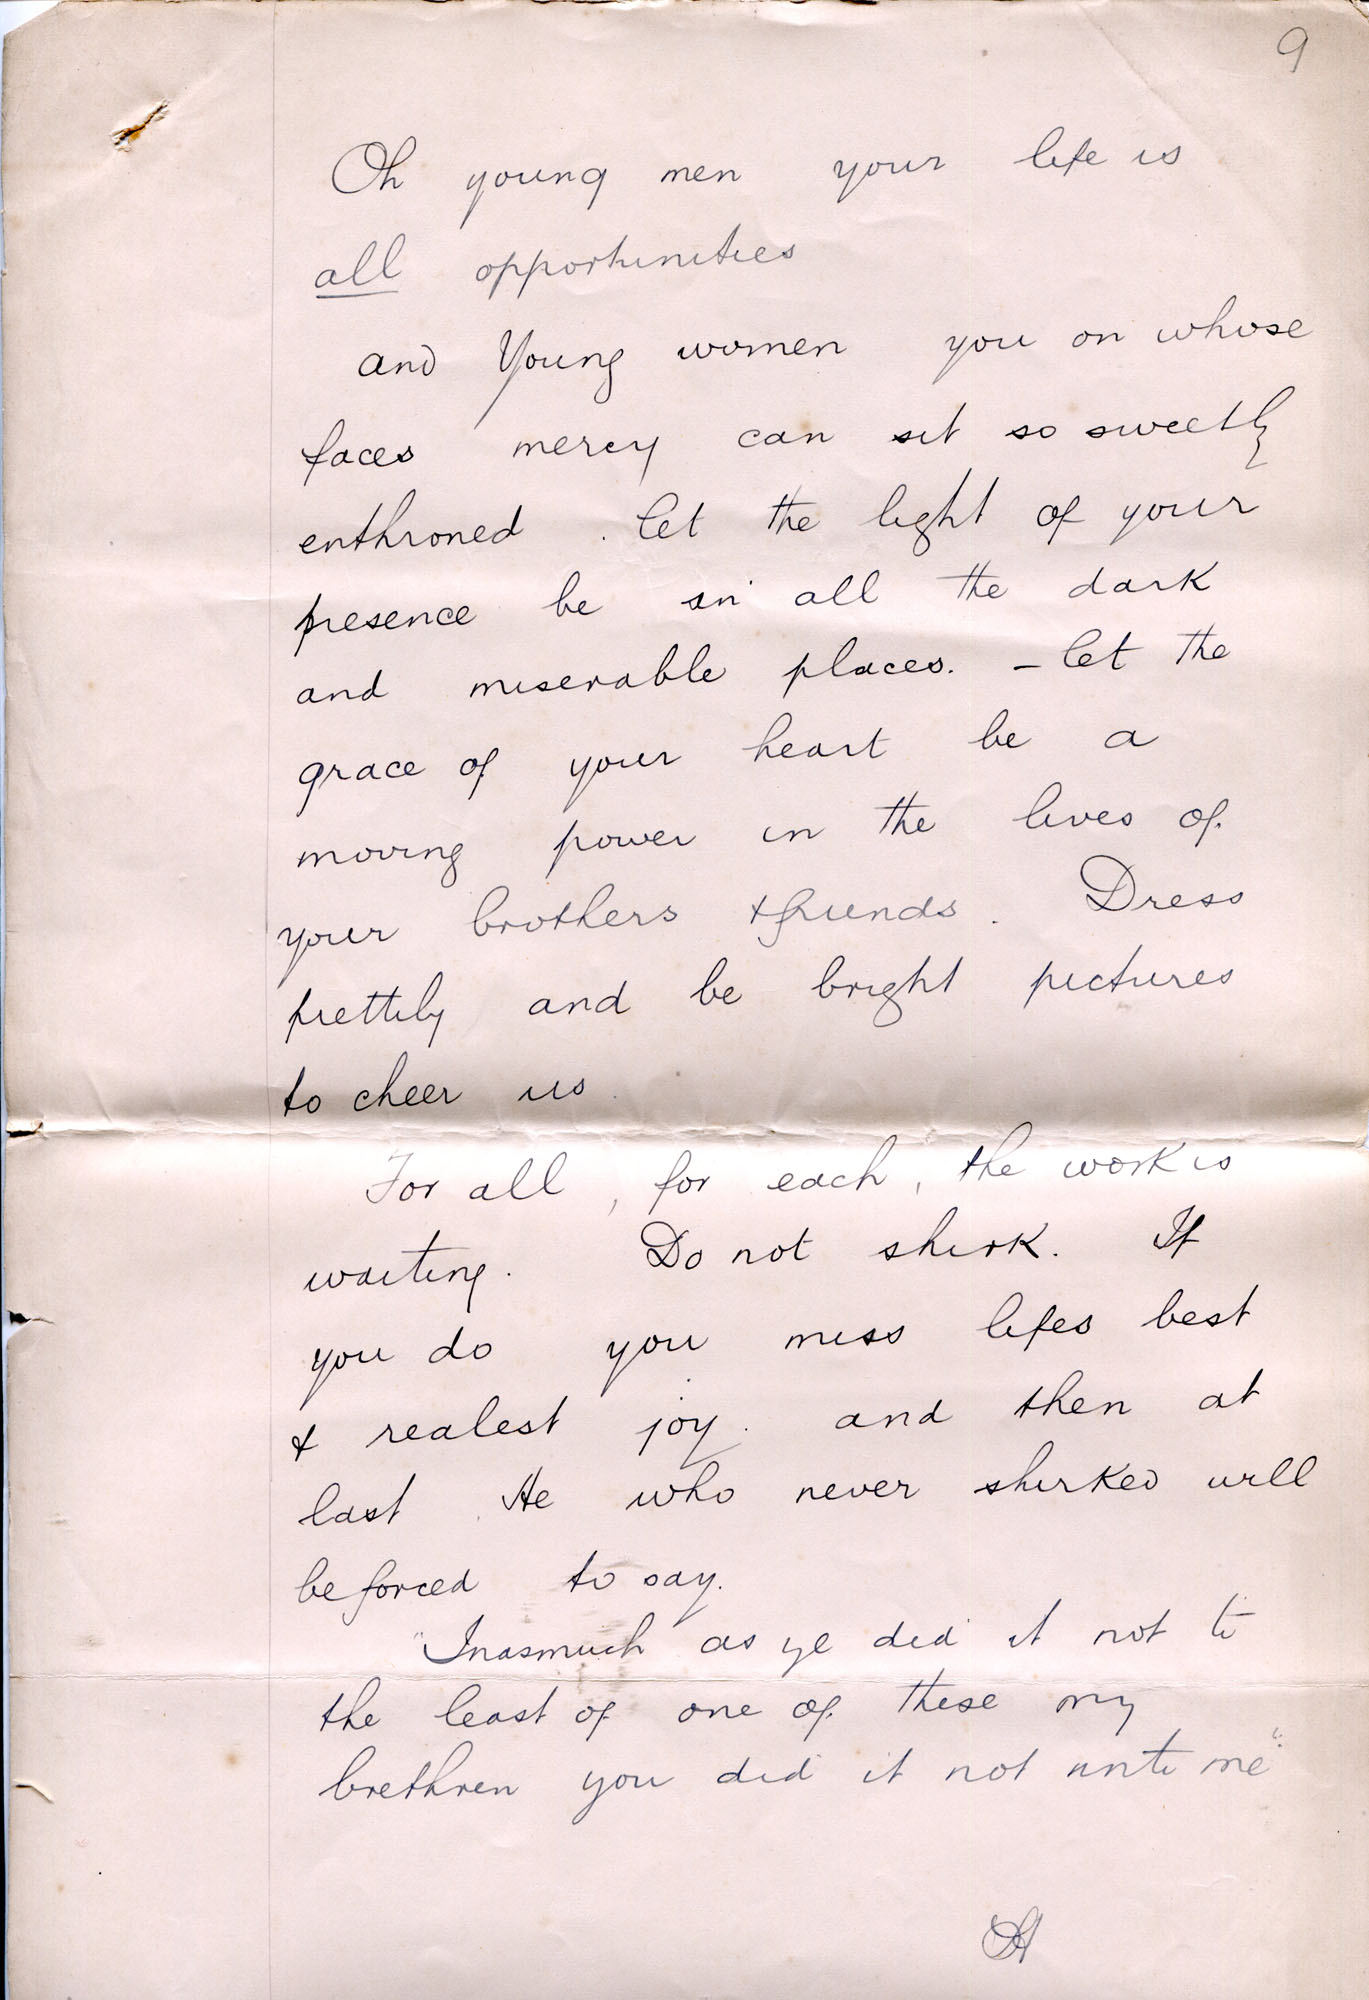 9
Oh young men your life is
all opportunities
and Young women you on whose
faces mercy can sit so sweetly
enthroned . let the light of your
presence be in all the dark
and miserable places. - let the
grace of your heart be a
moving power in the lives of
your brothers & friends . Dress
prettily and be bright pictures
to cheer us
For all , for each , the work is
waiting . Do not shirk . If
you do you miss lifes best
& realest joy . and then at
last . He who never shirked will
be forced to say.
"Inasmuch as ye did it not to
the least of one of these my
brethren you did it not unto me"